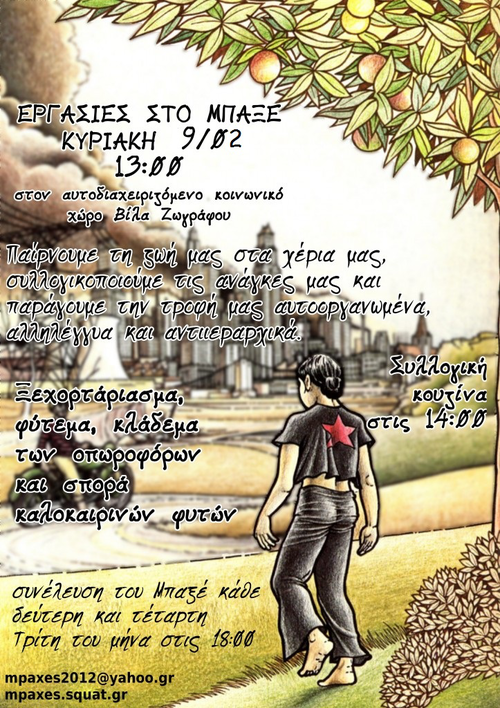 ΕΡΓΑΣΙΕΣ ΣΤΟ ΜΠΑΞΕ
ΚΥΡΙΑΚΗ 9/02
13:00
στον αυτοδιαχειριζόμενο κοινωνικό
χώρο Βίλα Ζωγράφου
Παίρνουμε τη ζωή μας στα χέρια μας,
συλλογικοποιούμε τις ανάγκες μας και
παράγουμε την τροφή μας αυτοοργανωμένα,
αλληλέγγυα και αντιιεραρχικά.
Συλλογική
κουζίνα
στις 14:00
Ξεχορτάριασμα,
φύτεμα, κλάδεμα
των οπωροφόρων
και σπορά
καλοκαιρινών φυτών
συνέλευση του Μπαξέ κάθε
δεύτερη και τέταρτη
Τρίτη του μήνα στις 18:00
mpaxes2012@yahoo.gr
mpaxes.squat.gr